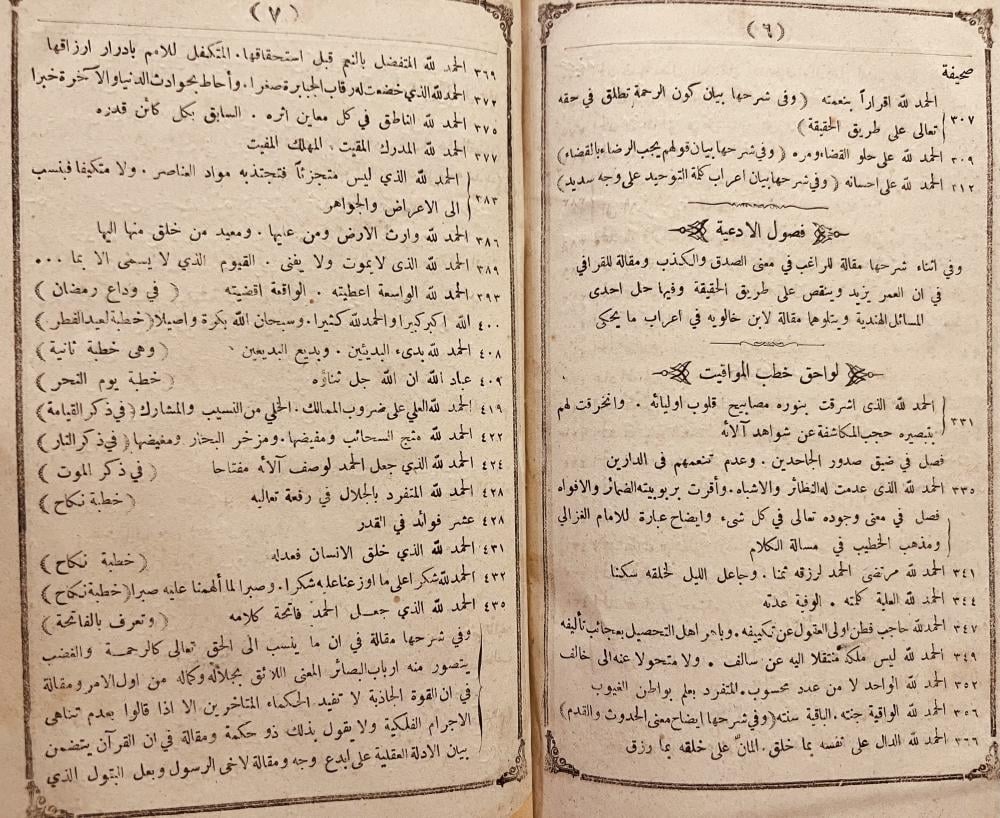 (٦)
صحيفة
الحمد لله اقراراً بنعمته (وفى شرحها بيان كون الرحمة تطلق في حقه
٣٠٧
تعالى على طريق الحقيقة)
٣٠٩ الحمد لله على حلو القضاء ومره (وفي شرحها بيان قولهم يجب الرضاء بالقضاء)
٣١٢ الحمد لله على احسانه (وفي شرحها بيان اعراب كلمة التوحيد على وجه سديد)
فصول الادعية
وفي اثناء شرحها مقالة للراغب في معنى الصدق والكذب ومقالة للقرافي
في ان العمر يزيد وينقص على طريق الحقيقة وفيها حل احدى
المسائل الهندية ويتلوها مقالة لابن خالويه في اعراب ما يحكى
لواحق خطب المواقيت
الحمد لله الذى اشرقت بنوره مصابيح قلوب اوليائه . وانخرقت لهم
٣٣١
بتبصيره حجب المكاشفة عن شواهد آلائه
فصل في ضيق صدور الجاحدين . وعدم تنعمهم فى الدارين
٣٣٥ الحمد لله الذى عدمت له النظائر والاشباه . وأقرت بربوبيته الضمائر والافواه
فصل في معنى وجوده تعالى في كل شىء وايضاح عبارة للامام الغزالي
ومذهب الخطيب في مسالة الكلام
٣٤١ الحمد لله مرتضى الحمد لرزقه ثمنا . وجاعل الليل لخلقه سكنا
٣٤٤ الحمد لله العلية كلمته . الوفية عدته
٣٤٧ الحمد لله حاجب فطن اولى العقول عن تكييفه . وباهر اهل التحصيل بعجائب تأليفه
٣٤٩ الحمد لله ليس ملكه منتقلا اليه عن سالف . ولا متحولا عنه الى خالف
٣٥٢ الحمد لله الواحد لا من عدد محسوب . المتفرد بعلم بواطن الغيوب
٣٥٦ الحمد لله الواقية جنته . الباقية سنته (وفي شرحها ايضاح معنى الحدوث والقدم)
٣٦٦ الحمد لله الدال على نفسه بما خلق . المانّ على خلقه بما رزق
(٧)
٣٦٩ الحمد لله المتفضل بالنعم قبل استحقاقها . المتكفل للامم بادرار ارزاقها
٣٧٢ الحمد لله الذي خضعت له رقاب الجبابرة صغرا . وأحاط بحوادث الدنيا والآخرة خبرا
٣٧٥ الحمد لله الناطق في كل معاين اثره . السابق بكل كائن قدره
٣٧٧ الحمد لله المدرك المقيت . المهلك المفيت
الحمد لله الذي ليس متجزئاً فتجتذبه مواد العناصر . ولا متكيفا فينسب
٣٨٣
الى الاعراض والجواهر
٣٨٦ الحمد لله وارث الارض ومن عليها . ومعيد من خلق منها اليها
٣٨٩ الحمد لله الذى لا يموت ولا يفنى . القيوم الذي لا يسمى الا بما ...
٣٩٣ الحمد لله الواسعة اعطيته . الواقعة اقضيته (في وداع رمضان)
٤٠٠ الله اكبر كبيرا والحمد لله كثيرا . وسبحان الله بكرة واصيلا (خطبة لعيد الفطر.)
٤٠٨ الحمد لله بدىء البديئين . وبديع البديعين (وهى خطبة ثانية)
٤٠٩ عباد الله ان الله جل ثناؤه (خطبة يوم النحر)
٤١٩ الحمد لله العلي على ضروب الممالك . الخلي من النسيب والمشارك (في ذكر القيامة)
٤٢٢ الحمد لله منتج السحائب ومفيضها . ومزخر البحار ومغيضها (في ذكر النار)
٤٢٤ الحمد لله الذي جعل الحمد لوصف آلائه مفتاحا (في ذكر الموت)
٤٢٨ الحمد لله المتفرد بالجلال في رفعة تعاليه (خطبة نكاح)
٤٢٨ عشر فوائد في القدر
٤٣١ الحمد لله الذي خلق الانسان فعدله (خطبة نكاح)
٤٣٢ الحمد لله شكرا على ما اوزعنا عليه شكرا . وصبرا لما ألهمنا عليه صبرا (خطبة نكاح)
٤٣٥ الحمد لله الذي جعل الحمد فاتحة كلامه (وتعرف بالفاتحة)
وفي شرحها مقالة في ان ما ينسب الى الحق تعالى كالرحمة والغضب
يتصور منه ارباب البصائر المعنى اللائق بجلاله وكماله من اول الامر ومقالة
في ان القوة الجاذبة لا تفيد الحكماء المتاخرين الا اذا قالوا بعدم تناهى
الاجرام الفلكية ولا يقول بذلك ذو حكمة ومقالة في ان القرآن يتضمن
بيان الادلة العقلية على ابدع وجه ومقالة لاخى الرسول وبعل البتول الذي